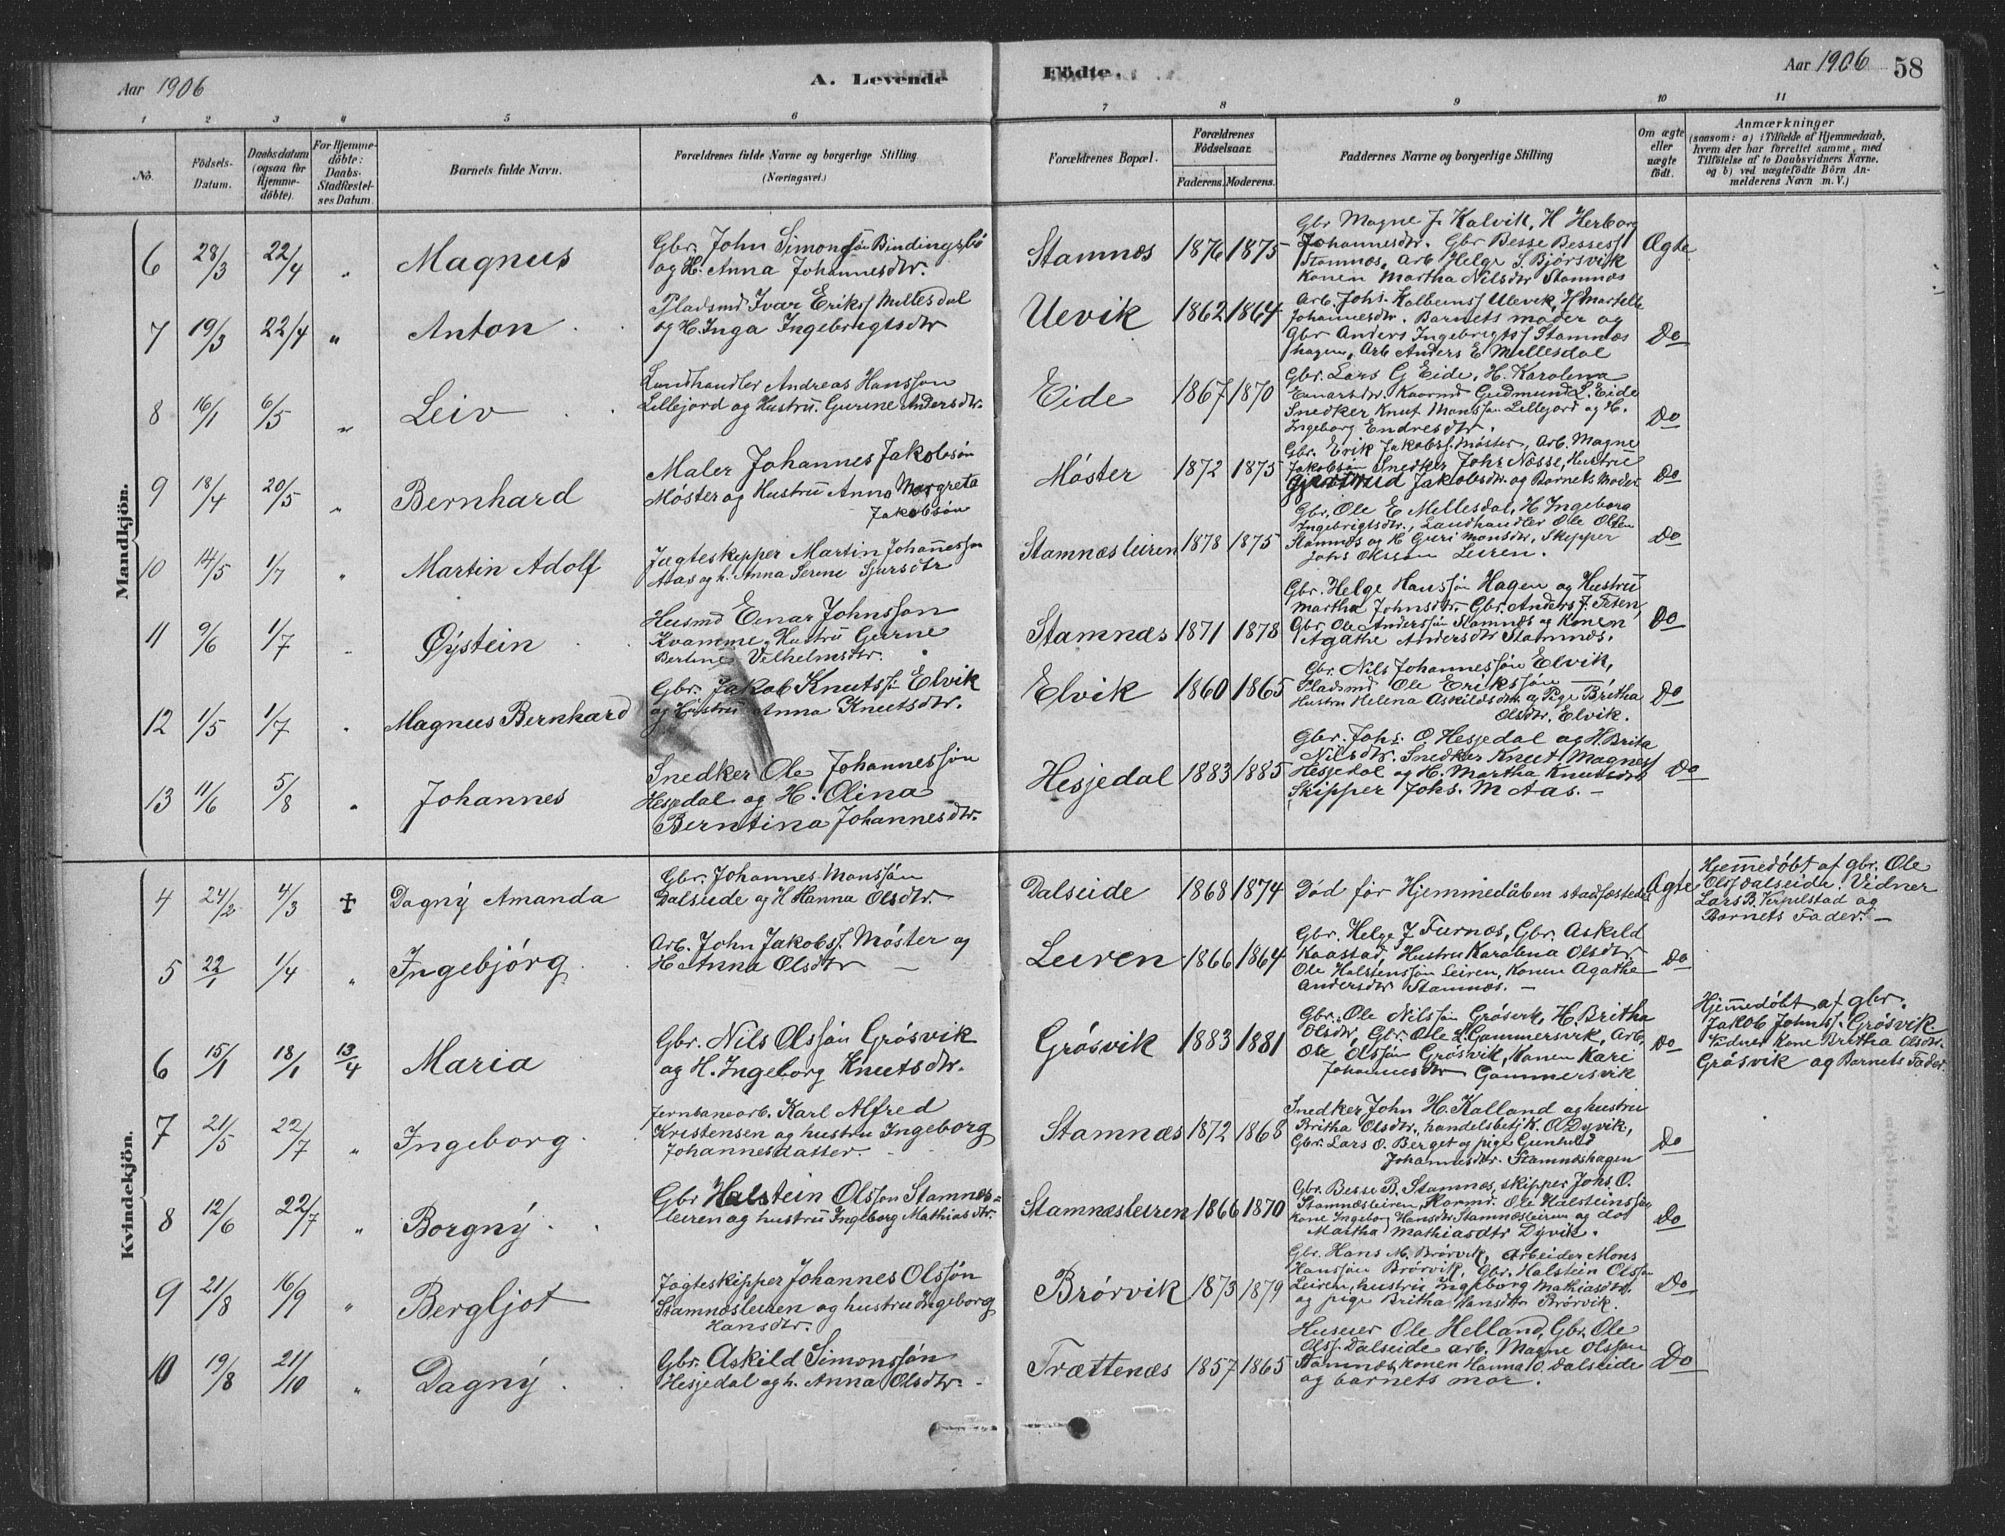 Aar 1906
A. Levende
Födte.
Aar 1906
58
1 2 3 4 5 6 7 8 9 10 11
No.
Födsels-Datum.
Daabsdatum (ogsaa for Hjemmedöbte).
For Hjemmedöbte: Daabs-Stadfæstelses Datum.
Barnets fulde Navn.
Forældrenes fulde Navne og borgerlige Stilling
(Næringsvei.)
Forældrenes Bopæl.
Forældrenes Födselsaar.
Faderens. Moderens.
Faddernes Navne og borgerlige Stilling
Om ægte eller uægte födt.
Anmærkninger
(saasom: a) i Tilfælde af Hjemmedaab, hvem der har forrettet samme, med Tilföielse af to Daabsvidners Navne, og b) ved uægtefödte Börn Anmelderens Navn m. V.)
Mandkjön.
6 28/3 22/4 " Magnus
Gbr. John Simonssön Bindingsbö
og H. Anna Johannesdtr.
Stamnæs 1876 1875
Gbr Magne J. Kalvik, H Herborg
Johannesdtr. Gbr Besse Bessess
Stamnæs, Arb Helge S. Bjørsvik
Konen Martha Nilsdtr Stamnæs
Ægte
7 19/3 22/4 " Anton
Pladsmd Ivar Erikss Millesdal
og H. Inga Ingebrigtsdtr
Uevik 1862 1864
Arb. Johs. Kolbeins Ulevik, H Martelle
Johannesdtr. Barnets moder og
Gbr Anders Ingebrigts Stamnæs
hagen, Arb Anders E Millesdal
Do
8 16/1 6/5 " Leiv
Landhandler Andreas Hanssön
Lillejord og Hustru Gurine Andersdtr.
Eide 1867 1870
Gbr. Lars G Eide, H. Karolena
Einarsdtr. Kaarmd Gudmund L. Eide
Snedker Knut Monssön Lillejord og H.
Ingeborg Endresdtr.
Do
9 18/4 20/5 " Bernhard
Maler Johannes Jakobsön
Møster og Hustru Anna Margreta
Jakobsön
Møster 1872 1875
Gbr. Erik Jakobss. Møster, Arb. Magne
Jakobsön Snedker Johs Nosse, Hustru
Gjertrud Jakobsdtr. og Barnets Moder
Do
10 14/5 1/7 " Martin Adolf
Jægteskipper Martin Johannesson
Aas og h. Anna Serine Sjursdtr
Stamnæsleiren 1878 1875
Gbr. Ole E Millesdal, H Ingeborg
Ingebrigtsdtr., Landhandler Ole Olsen
Stamnæs og H Guri Monsdtr, Skipper
Johs Olsson Leiren.
Do
11 9/6 1/7 Øystein
Husmd Einar Johnsson
Kvamme, Hustru Gurine
Berline Vilhelmsdtr.
Stamnæs 1871 1878
Gbr. Helge Hanssön Hagen og Hustru
Martha Johnsdtr. Gbr. Anders J. Teten,
Gbr Ole Anderssön Stamnæs og Konen
Agathe Andersdtr Stamnæs.
Do
12 1/5 1/7 " Magnus Bernhard
Gbr. Jakob Knutss. Elvik
og Hustru Anna Knutsdtr.
Elvik 1860 1865
Gbr. Nils Johannessön Elvik,
Pladsmd Ole Erikssön
Hustru Helena Askildsdtr. og Pige Britha
Olsdtr. Elvik.
Do
13 11/6 5/8 " Johannes
Snedker Ole Johannessön
Hesjedal og H. Olina
Berntina Johannesdtr.
Hesjedal 1883 1885
Gbr. Johs. O Hesjedal og H. Brita
Nilsdtr. Snedker Knut Magness
Hesjedal og H. Martha Knutsdtr
Skipper Johs. M Aas.
Do
Kvindekjön.
4 24/2 4/3 ‡ Dagný Amanda
Gbr. Johannes Monssön
Dalseide og H Hanna Olsdtr.
Dalseide 1868 1874
Død før Hjemmedåben stadfæstedes
Ægte
Hjemmedøbt af gbr. Ole
Olss Dalseide. Vidner
Lars B. og
Barnets Fader.
5 22/1 1/4 " Ingebjörg
Arb. John Jakobss. Møster og
H. Anna Olsdtr
Leiren 1866 1864
Gbr. Helge J Furnæs, Gbr. Askild
Kaastad, Hustru Karolena Olsdtr.
Ole Halstenssön Leiren, Konen Agathe
Andersdtr Stamnæs.
Do
6 15/1 18/1 13/4 Maria
Gbr. Nils Olssön Grösvik
og H. Ingeborg Knutsdtr.
Grösvik 1883 1881
Gbr. Ole Nilssön Grösvik, H. Britha
Olsdtr, Gbr. Ole L. Gammersvik, Arb.
Ole Olssön Grösvik, Konen Kari
Johannesdtr Gammersvik
Do
Hjemmedøbt af gbr.
Jakob Johnss. Grösvik.
Vidner Kone Britha Olsdtr.
Grösvik og Barnets Fader.
7 21/5 22/7 " Ingeborg
Jernbanearb. Karl Alfred
Kristensen og hustru Ingeborg
Johannesdatter.
Stamnæs 1872 1868
Snedker John H. Kalland og hustru
Britha Olsdtr, handelsbetj. K. O. Dyvik,
Gbr. Lars O. Berget og pige Gunhild
Johannesdtr. Stamneshagen
Do
8 12/6 22/7 " Borgný
Gbr Halstein Olsson Stamnes-
leiren og hustru Ingeborg Mathiasdtr.
Stamnæsleiren 1866 1870
Gbr. Besse B. Stamnæs, skipper Johs. O.
Stamnæsleiren, Kormd. Ole Halsteinssön
kone Ingeborg Hansdtr Stamnæsleiren og do
Martha Mathiasdtr Dyvik.
Do
9 21/8 16/9 " Bergljot
Jægteskipper Johannes Olssön
Stamnæsleiren og hustru Ingeborg
Hansdtr.
Brørvik 1873 1879
Gbr. Hans M. Brørvik, Arbeider Mons
Hanssön Brørvik, Gbr. Halstein Olsson
Leiren, hustru Ingeborg Mathiasdtr.
og pige Britha Hansdtr Brørvik.
Do
10 19/8 21/10 " Dagný
Gbr. Askild Simonssön
Hesjedal og h. Anna Olsdtr.
Trættenæs 1857 1865
Huseier Ole Helland, Gbr. Ole
Olss. Dalseide arb. Magne Olsson
Stamnæs konen Hanna O. Dalseide
og barnets mor.
Do